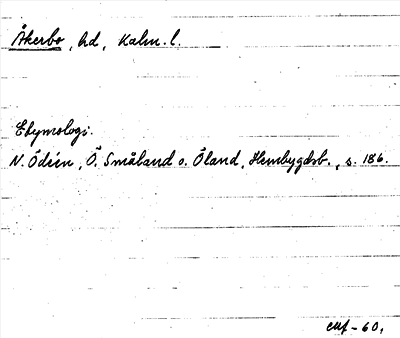 Åkerbo, hd, Kalm. l.
Etymologi.
N. Ödéen, Ö. Småland o. Öland, Hembygdsb., s. 186.
-60.